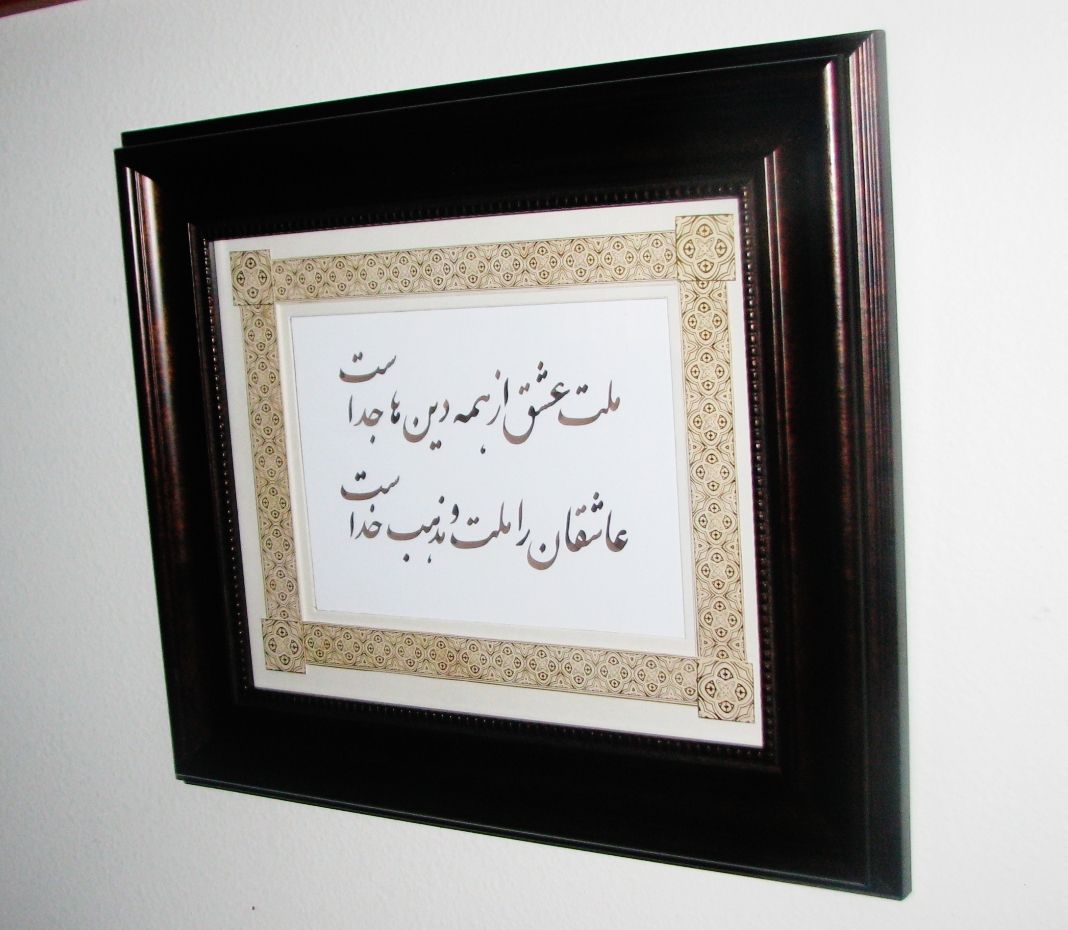 ملت عشق از همه دین ها جداست
عاشقان را ملت و مذهب خداست